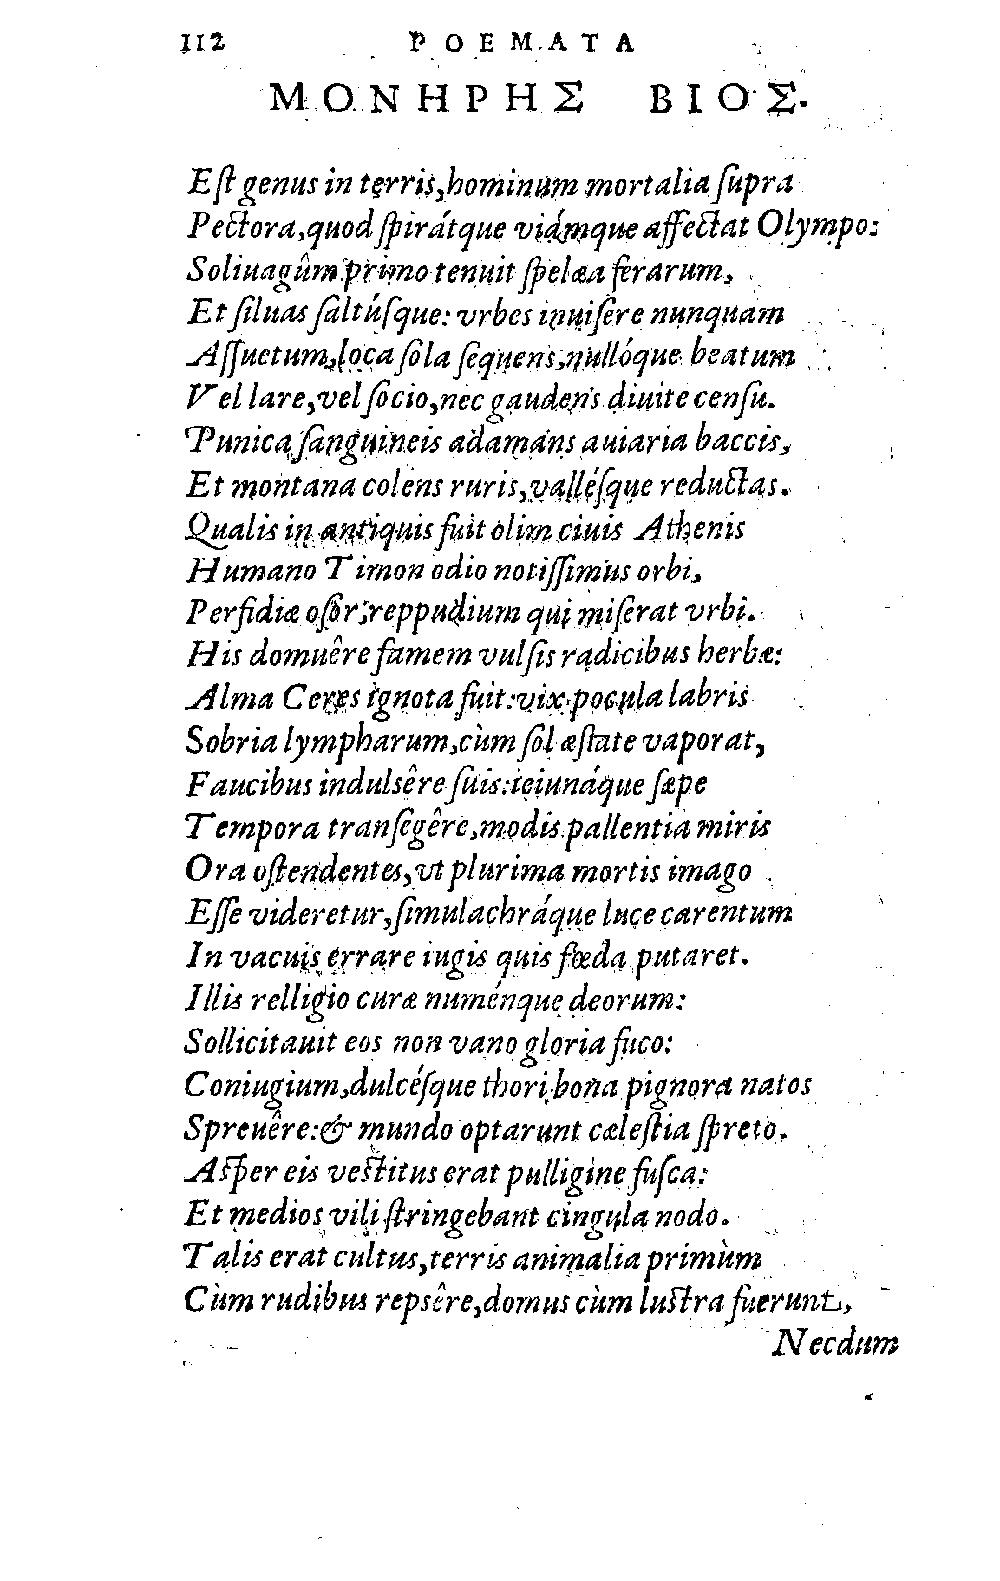 112 POEMATA
ΜΟΝΗΡΗΣ ΒΙΟΣ.
Eſt genus in terris, hominum mortalia ſupra
Pectora, quod ſpirátque viámque affectat Olympo:
Soliuagûm primo tenuit ſpelæa ferarum,
Et ſiluas ſaltúſque: vrbes inuiſere nunquam
Aſſuetum, loca ſola ſequens, nullóque beatum
Vel lare, vel ſocio, nec gaudens diuite cenſu.
Punica ſanguineis adamans auiaria baccis,
Et montana colens ruris, valléſque reductas.
Qualis in antiquis fuit olim ciuis Athenis
Humano Timon odio notiſſimus orbi,
Perfidiæ oſor, reppudium qui miſerat vrbi.
His domuêre famem vulſis radicibus herbæ:
Alma Ceres ignota fuit: vix pocula labris
Sobria lympharum, cùm ſol æſtate vaporat,
Faucibus indulsêre ſuis: ieiunáque ſæpe
Tempora tranſegêre, modis pallentia miris
Ora oſtendentes, vt plurima mortis imago
Eſſe videretur, ſimulachráque luce carentum
In vacuis errare iugis quis fœda putaret.
Illis relligio curæ numénque deorum:
Sollicitauit eos non vano gloria fuco:
Coniugium, dulcéſque thori bona pignora natos
Spreuêre: & mundo optarunt cæleſtia ſpreto.
Aſper eis veſtitus erat pulligine fuſca:
Et medios vili ſtringebant cingula nodo.
Talis erat cultus, terris animalia primùm
Cùm rudibus repsêre, domus cùm luſtra fuerunt,
Necdum